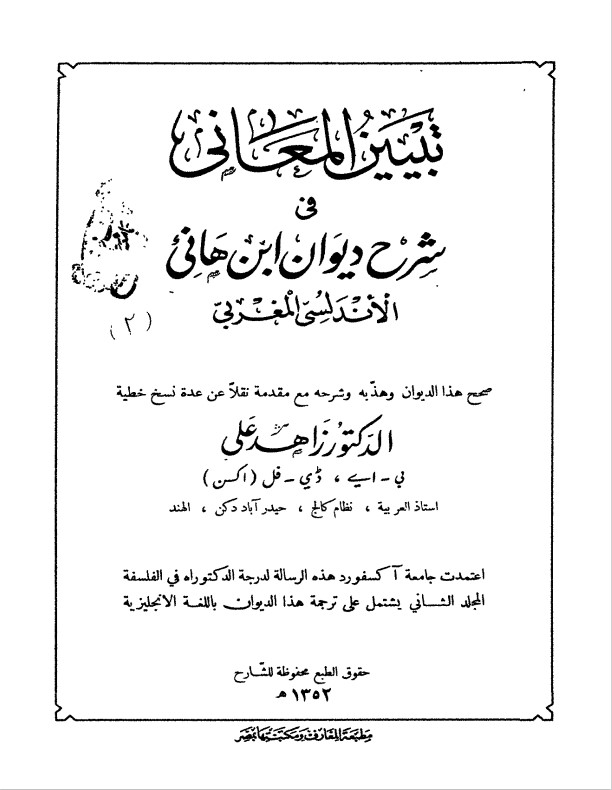 تبيين المعاني
في
شرح ديوان ابن هانئ
الأندلسي المغربي
(٢)
صحح هذا الديوان وهذّبه وشرحه مع مقدمة نقلاً عن عدة نسخ خطية
الدكتور زاهد علي
بي - اے ، ڈي - فل (اكسن)
استاذ العربية ، نظام كالج ، حيدر آباد دكن ، الهند
اعتمدت جامعة آكسفورد هذه الرسالة لدرجة الدكتوراه في الفلسفة
المجلد الثاني يشتمل على ترجمة هذا الديوان باللغة الانجليزية
حقوق الطبع محفوظة للشّارح
١٣٥٢ هـ
مطبعة المعارف ومكتبتها بمصر